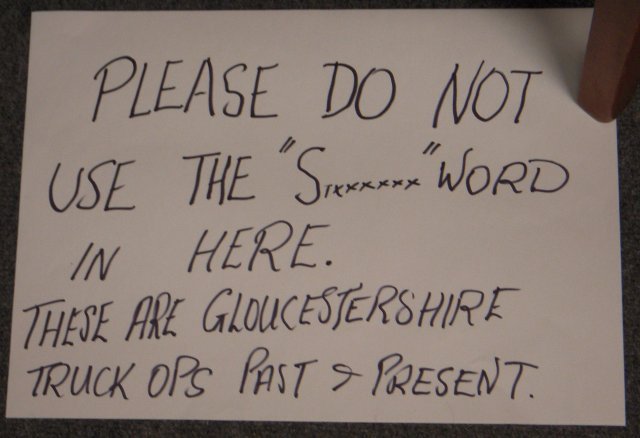 PLEASE DO NOT
USE THE "STxxxxxxx" WORD
IN HERE.
THESE ARE GLOUCESTERSHIRE
TRUCK OPS PAST & PRESENT.